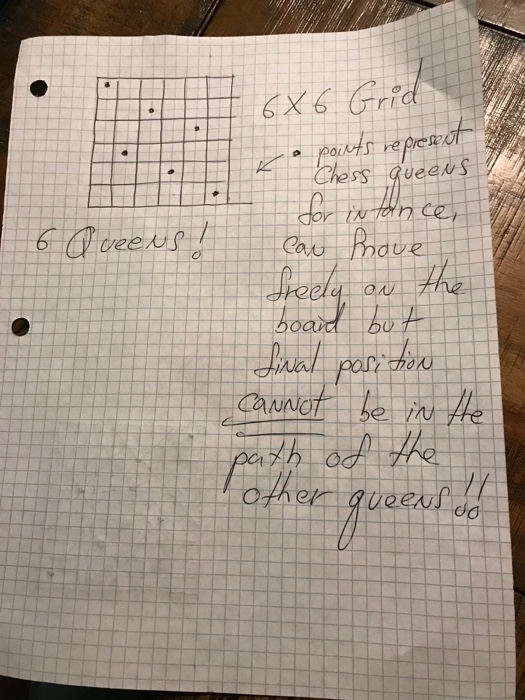 6X6 Grid
• points represent
Chess queens
for intance,
can move
freely on the
board but
final position
cannot be in the
path of the
other queens!!
6 Queens!